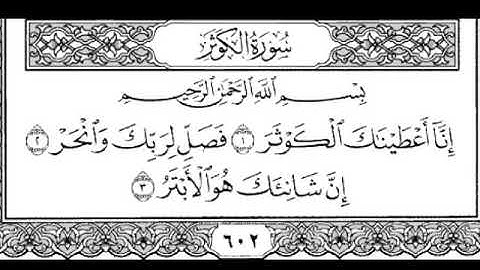 سُورَةُ الْكَوْثَرِ
بِسْمِ اللَّهِ الرَّحْمَٰنِ الرَّحِيمِ
إِنَّآ أَعْطَيْنَٰكَ الْكَوْثَرَ ١ فَصَلِّ لِرَبِّكَ وَانْحَرْ ٢
إِنَّ شَانِئَكَ هُوَ الْأَبْتَرُ ٣
٦٠٢